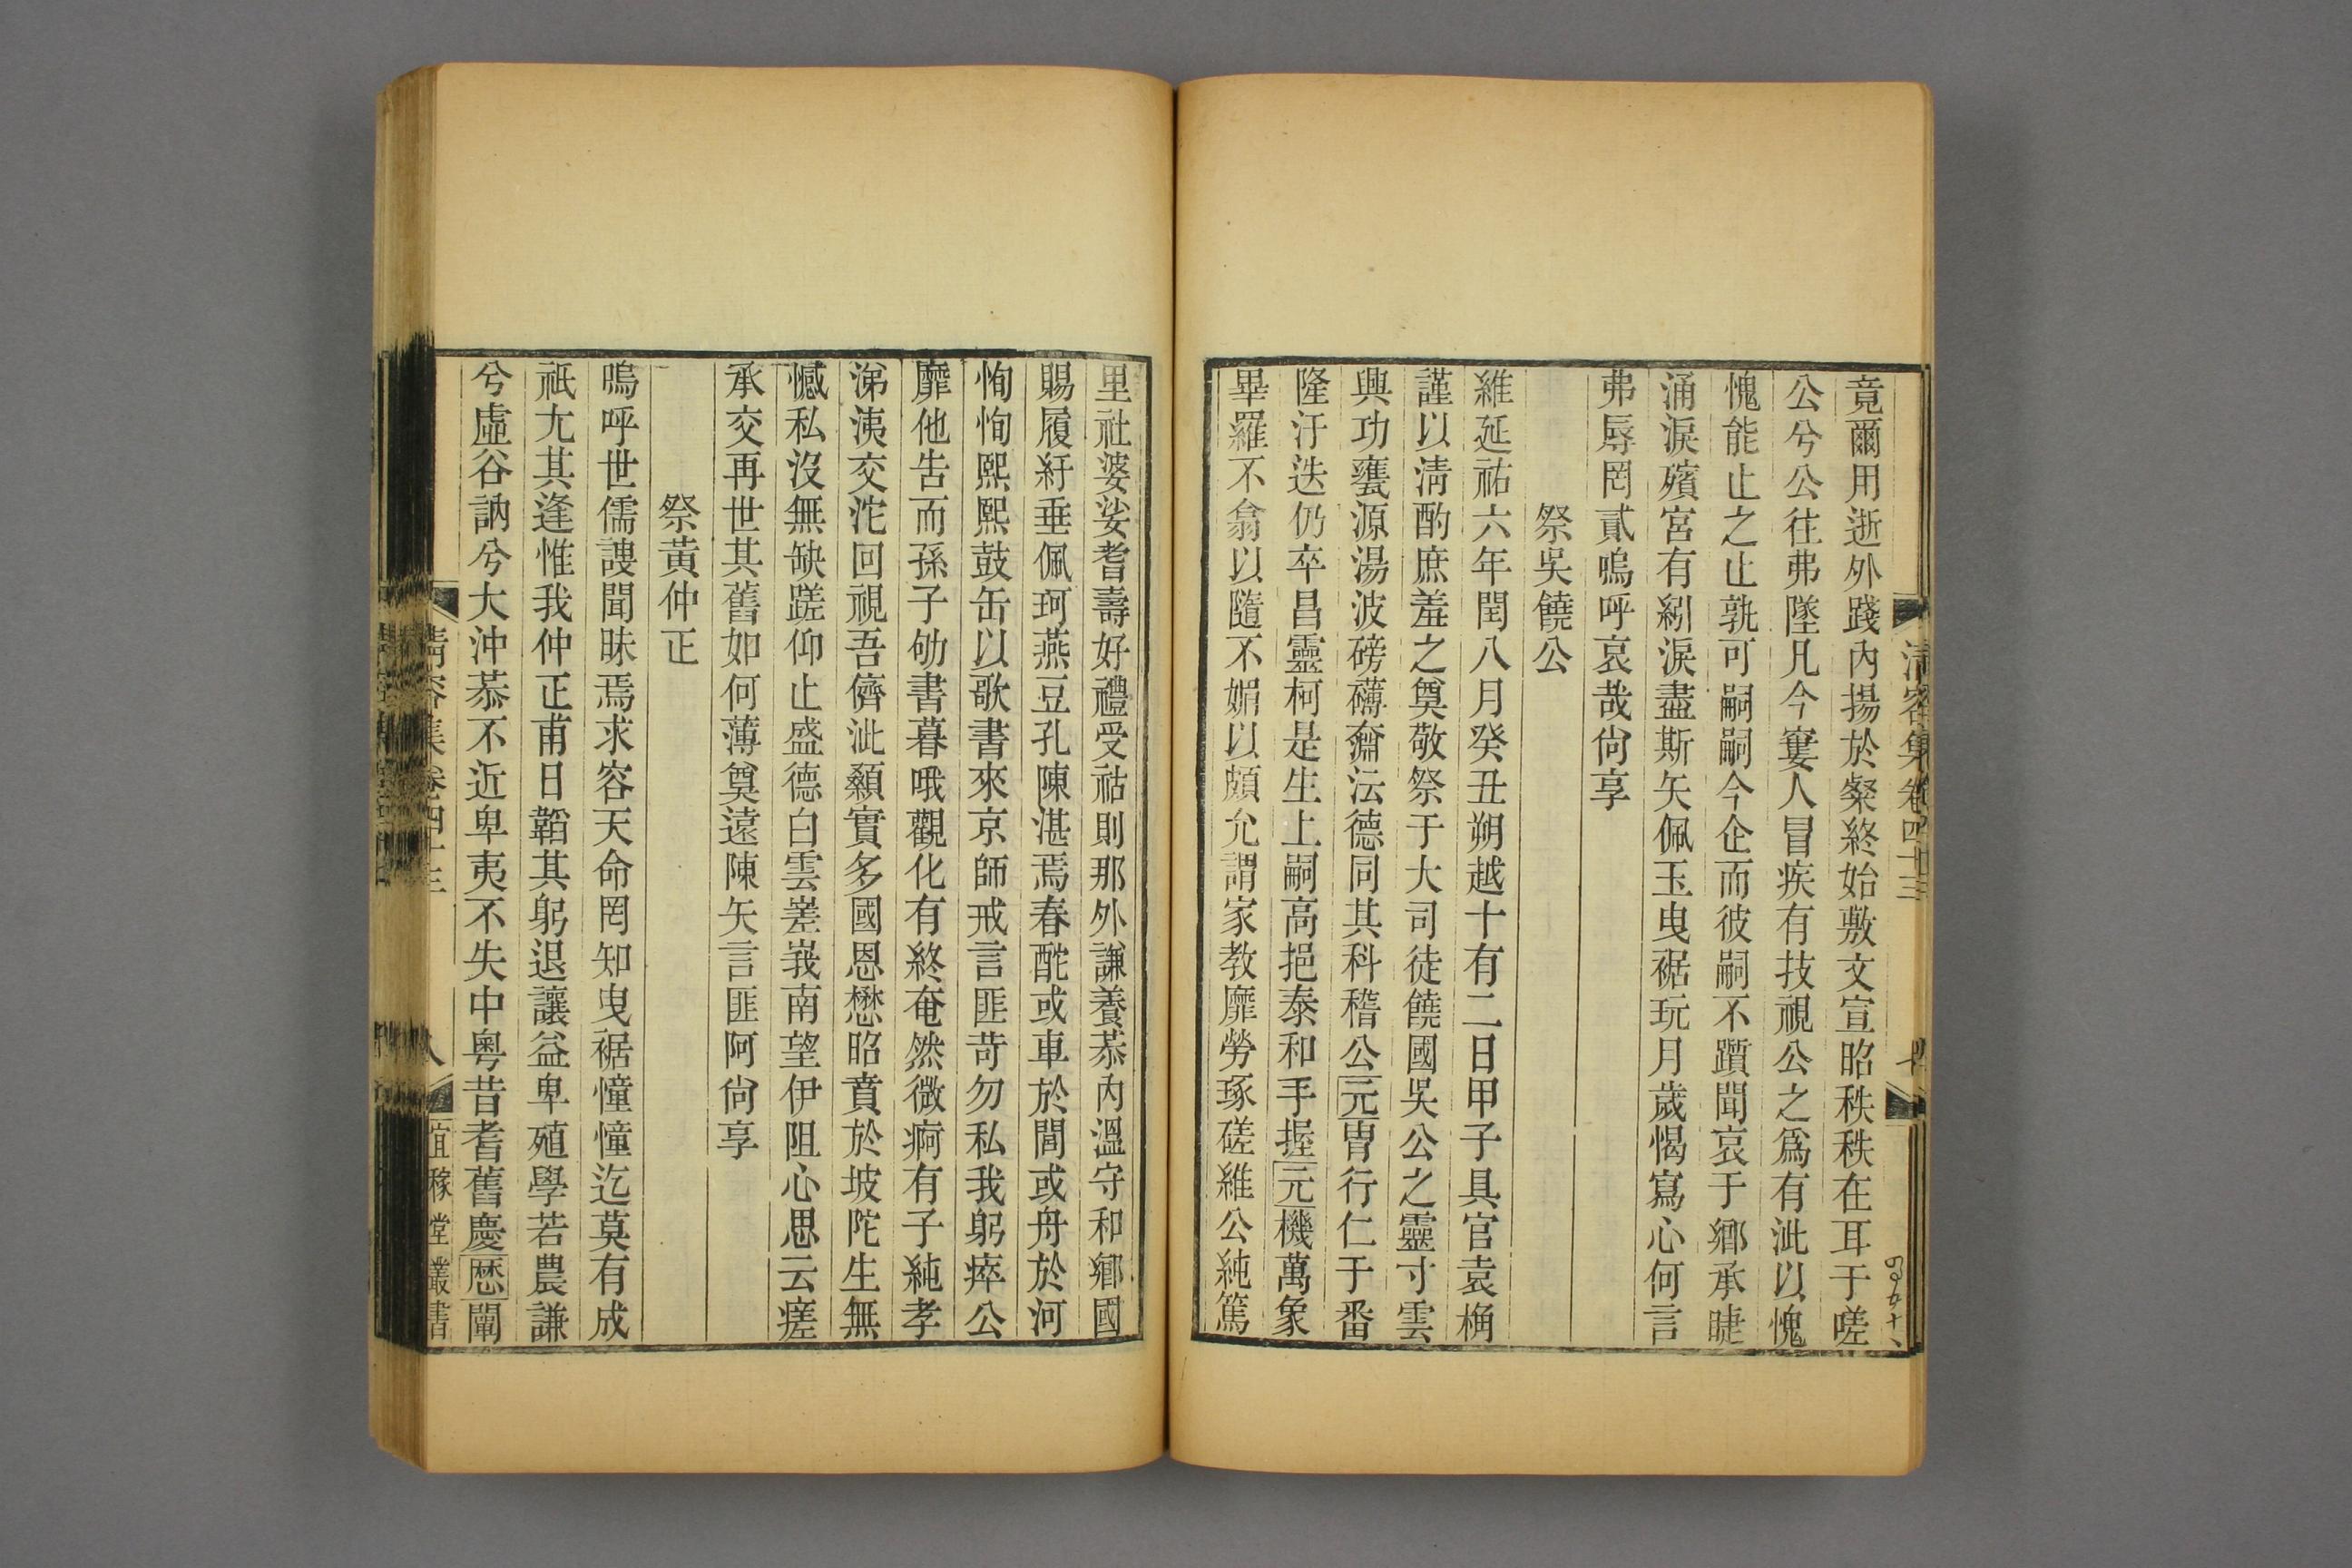 竟爾用逝外踐內揚於粲終始敷文宣昭秩秩在耳于嗟
公兮公往弗墜凡今窶人冒疾有技視公之爲有泚以愧
愧能止之止孰可嗣嗣今企而彼嗣不躓聞哀于鄉承睫
涌淚殯宮有紖淚盡斯矢佩玉曳裾玩月歲愒寫心何言
弗辱罔貳嗚呼哀哉尙享
祭吳饒公
維延祐六年閏八月癸丑朔越十有二日甲子具官袁桷
謹以淸酌庶羞之奠敬祭于大司徒饒國吳公之靈寸雲
興功甕源湯波磅礴奫沄德同其科稽公元冑行仁于番
隆汙迭仍卒昌靈柯是生上嗣高挹泰和手握元機萬象
畢羅不翕以隨不媚以頗允謂家教靡勞琢磋維公純篤
里社婆娑耆壽好禮受祜則那外謙養恭內溫守和鄉國
賜履紆垂佩珂燕豆孔陳湛焉春酡或車於閭或舟於河
恂恂熙熙鼓缶以歌書來京師戒言匪苛勿私我躬瘁公
靡他吿而孫子劬書暮哦觀化有終奄然微痾有子純孝
涕洟交沱回視吾儕泚顙實多國恩懋昭賁於坡陀生無
憾私沒無缺蹉仰止盛德白雲嵳峩南望伊阻心思云瘥
承交再世其舊如何薄奠遠陳矢言匪阿尙享
祭黃仲正
嗚呼世儒謏聞昧焉求容天命罔知曳裾憧憧迄莫有成
祇尤其逢惟我仲正甫日韜其躬退讓益卑殖學若農謙
兮虛谷訥兮大沖恭不近卑夷不失中粵昔耆舊慶厯闡
清容集卷四十三
八
宜稼堂叢書